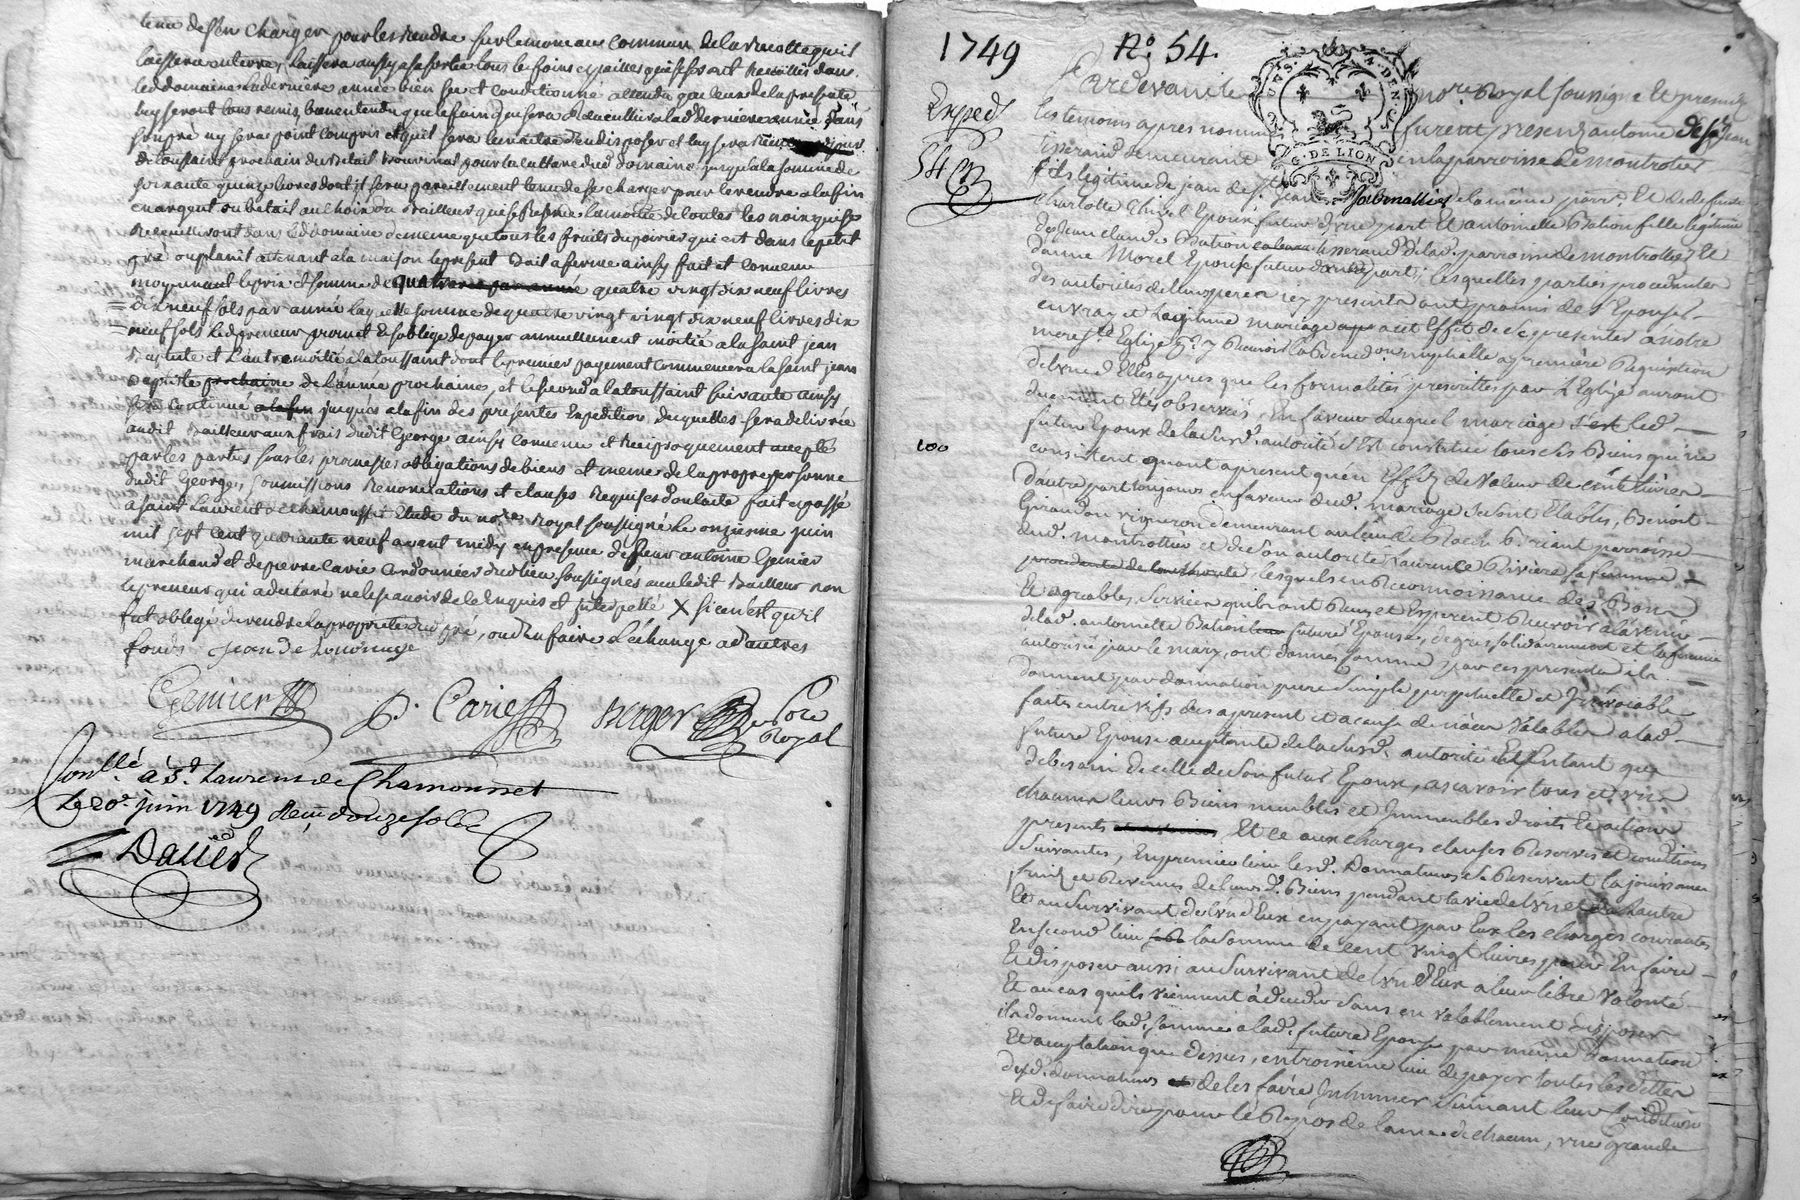 tenu de s'en charger pour les rendre sur le monceau commun de la recolte qu'il
laissera aussy a sa sortie tous les foins et pailles qui se seront recueillis dans
led domaine la derniere année bien sec et conditionné attendu que ceux de la presente
luy seront tous remis, bien entendu que le foin qui sera recueilli lad derniere année dans
son pré n'y sera point compris et qu'il sera le maitre d'en disposer et luy sera
de toussaint prochain du betail pour la culture dud domaine jusqu'a la somme de
soixante quinze livres dont il sera pareillement tenu de se charger pour le rendre a la fin
en argent ou betail au choix du bailleur qui se reserve la moitié de toutes les noix qui se
recueilliront dans led domaine de meme que tous les fruits du poirier qui est dans le petit
pré ou plant attenant a la maison le present bail a ferme ainsy fait et convenu
moyennant le prix et somme de quatre vingt dix neuf livres
dix neuf sols par année laquelle somme de quatre vingt vingt dix neuf livres dix
neuf sols led preneur promet et s'oblige de payer annuellement moitié a la saint jean
baptiste et l'autre moitié a la toussaint dont le premier payement commencera le saint jean
baptiste prochaine de l'année prochaine, et le second a la toussaint suivante ainsy
sera continué a la fin jusques a la fin des presentes Expedition desquelles sera delivrée
audit bailleur aux frais dudit George ainsy convenu et reciproquement accepté
par les parties sous les promesses obligations de biens et meme de la propre personne
dudit George, soumissions Renonciations et clauses Requises dont acte fait et passé
a saint Laurent de chamousset Etude du no.re Royal soussigné le onzieme juin
mil sept cent quarante neuf avant midy en presence de sieur antoine Genier
marchand et de pierre Carié Cordonnier dud lieu soussignés avec ledit bailleur non
le preneur qui a declaré ne le scavoir de ce Enquis et interpellé X si ce n'est qu'il
fut obligé de vendre la proprieté dud pré, ou d'en faire l'échange a d'autres
fonds
Genier P. Carié Berger no.re Royal
Con.llé à S.t Laurens de Chamousset
Le 20.e juin 1749 Reçu douze sols
Dalier
1749 N.o 54.
G. DE LION
Pardevant le no.re Royal soussigné Et present
Exped
les temoins apres nommés furent presents antoine de S.t Jean
tisserand demeurant en la parroisse de montrotier
54
fils legitime de jean de S.t Jean Journallier de la même parr.e Et de defunte
charlotte Epoux futur d'une part Et antoinette Bation fille legitime
de Jean claude Bation tisserand de lad. parroisse de montrottier Et
d'anne Morel Epouse future d'autre part; lesquelles parties procedantes
des autorités de leurs peres icy presents ont promis de s'Epouser
en vray et legitime mariage et Effet de se presenter à notre
mere S.te Eglise p.r y Recevoir la Benedon nuptialle a premiere Requisition
de l'une d'Elles apres que les formalités prescrittes par l'Eglise auront
duement Etés observées, En faveur duquel mariage led.
futur Epoux de la susd. autorité s'Est constitué tous ses Biens qui ne
100
consistent quant a present qu'en Effets de valeur de cent livres
D'autre part toujours en faveur dud. mariage se sont Etablis, Benoit
Giraudon vigneron demeurant au lieu de parroisse
dud. montrottier et de son autorité Laurence Riviere sa femme
lesquels en Reconnoissance des Bons
Et agreables services qu'ils ont Reçus et Esperent Recevoir à l'avenir
de lad. antoinette Bation future Epouse, de gré solidairement et la femme
autorisée par le mary, ont donnés comme par ces presentes ils
donnent par donnation pure simple perpetuelle et Irrevocable
faite entre vifs des a present et a cause de mieux valable a lad.
future Epouse acceptante de la susd. autorité Et Entant que
de besoin de celle de son futur Epoux, ascavoir tous et un
chacuns leurs Biens meubles et Immeubles droits Et actions
presents Et ce aux charges clauses Reserves et conditions
suivantes, En premier lieu lesd. Donnateurs se Reservent la jouissance
fruits et Revenus de leurs d. Biens pendant la vie de l'un et de l'autre
Et au survivant de l'un d'Eux en payant par Eux les charges courantes
En second lieu la somme de cent vingt livres pour En faire
Et disposer aussi au survivant de l'un d'Eux a leur libre volonté
Et au cas qu'ils viennent à deceder sans en valablement disposer
ils donnent lad. somme a lad. future Epouse par même donnation
Et acceptation que dessus, en troisieme lieu de payer toutes les dettes
desd. donnateurs de les faire Inhumer suivant leur Condition
Et de faire dire pour le Repos de l'ame de chacun, une grande